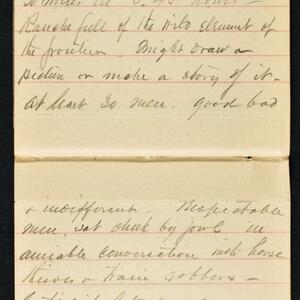 Ranche full of the wild element of
the frontier – Might draw a
picture or make a story of it –
at least 30 men. good bad
& indifferent. Respectable
men, sat cheek by jowl in
amiable conversation with horse
thieves & train robbers –